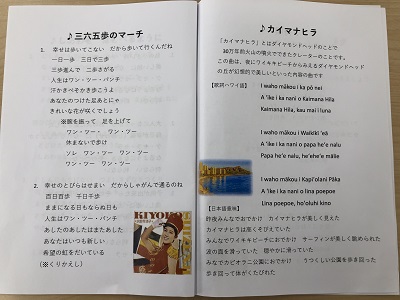 ♪三六五歩のマーチ
1. 幸せは歩いてこない だから歩いて行くんだね
一日一歩 三日で三歩
三歩進んで 二歩さがる
人生はワン・ツー・パンチ
汗かきべそかき歩こうよ
あなたのつけた足あとにゃ
きれいな花が咲くでしょう
※腕を振って 足を上げて
ワン・ツー・ ワン・ツー
休まないで歩け
ソレ ワン・ツー ワン・ツー
ワン・ツー ワン・ツー
2. 幸せのとびらはせまい だからしゃがんで通るのね
百日百歩 千日千歩
ままになる日もならぬ日も
人生はワン・ツー・パンチ
あしたのあしたはまたあした
あなたはいつも新しい
希望の虹をだいている
(※くりかえし)
KIYOKO
♪カイマナヒラ
「カイマナヒラ」とはダイヤモンドヘッドのことで
30万年前火山の噴火でできたクレーターのことです。
この曲は、夜にワイキキビーチからみえるダイヤモンドヘッド
の丘が幻想的で美しいといった内容の曲です
【歌詞ハワイ語】
I waho mākou i ka pō nei
A 'ike i ka nani o Kaimana Hila
Kaimana Hila, kau mai i luna
I waho mākou i Waikīkī 'eā
A 'ike i ka nani o papa he'e nalu
Papa he'e nalu, he'ehe'e mālie
I waho mākou i Kapi'olani Pāka
A 'ike i ka nani o lina poepoe
Lina poepoe, ho'oluhi kino
【日本語意味】
昨夜みんなでおでかけ カイマナヒラが美しく見えた
カイマナヒラは高くそびえていた
みんなでワイキキビーチにおでかけ サーフィンが美しく眺められた
波の面を滑っていた 穏やかに滑っていた
みなでカピオラニ公園におでかけ うつくしい公園を歩き回った
歩き回って体がくたびれた